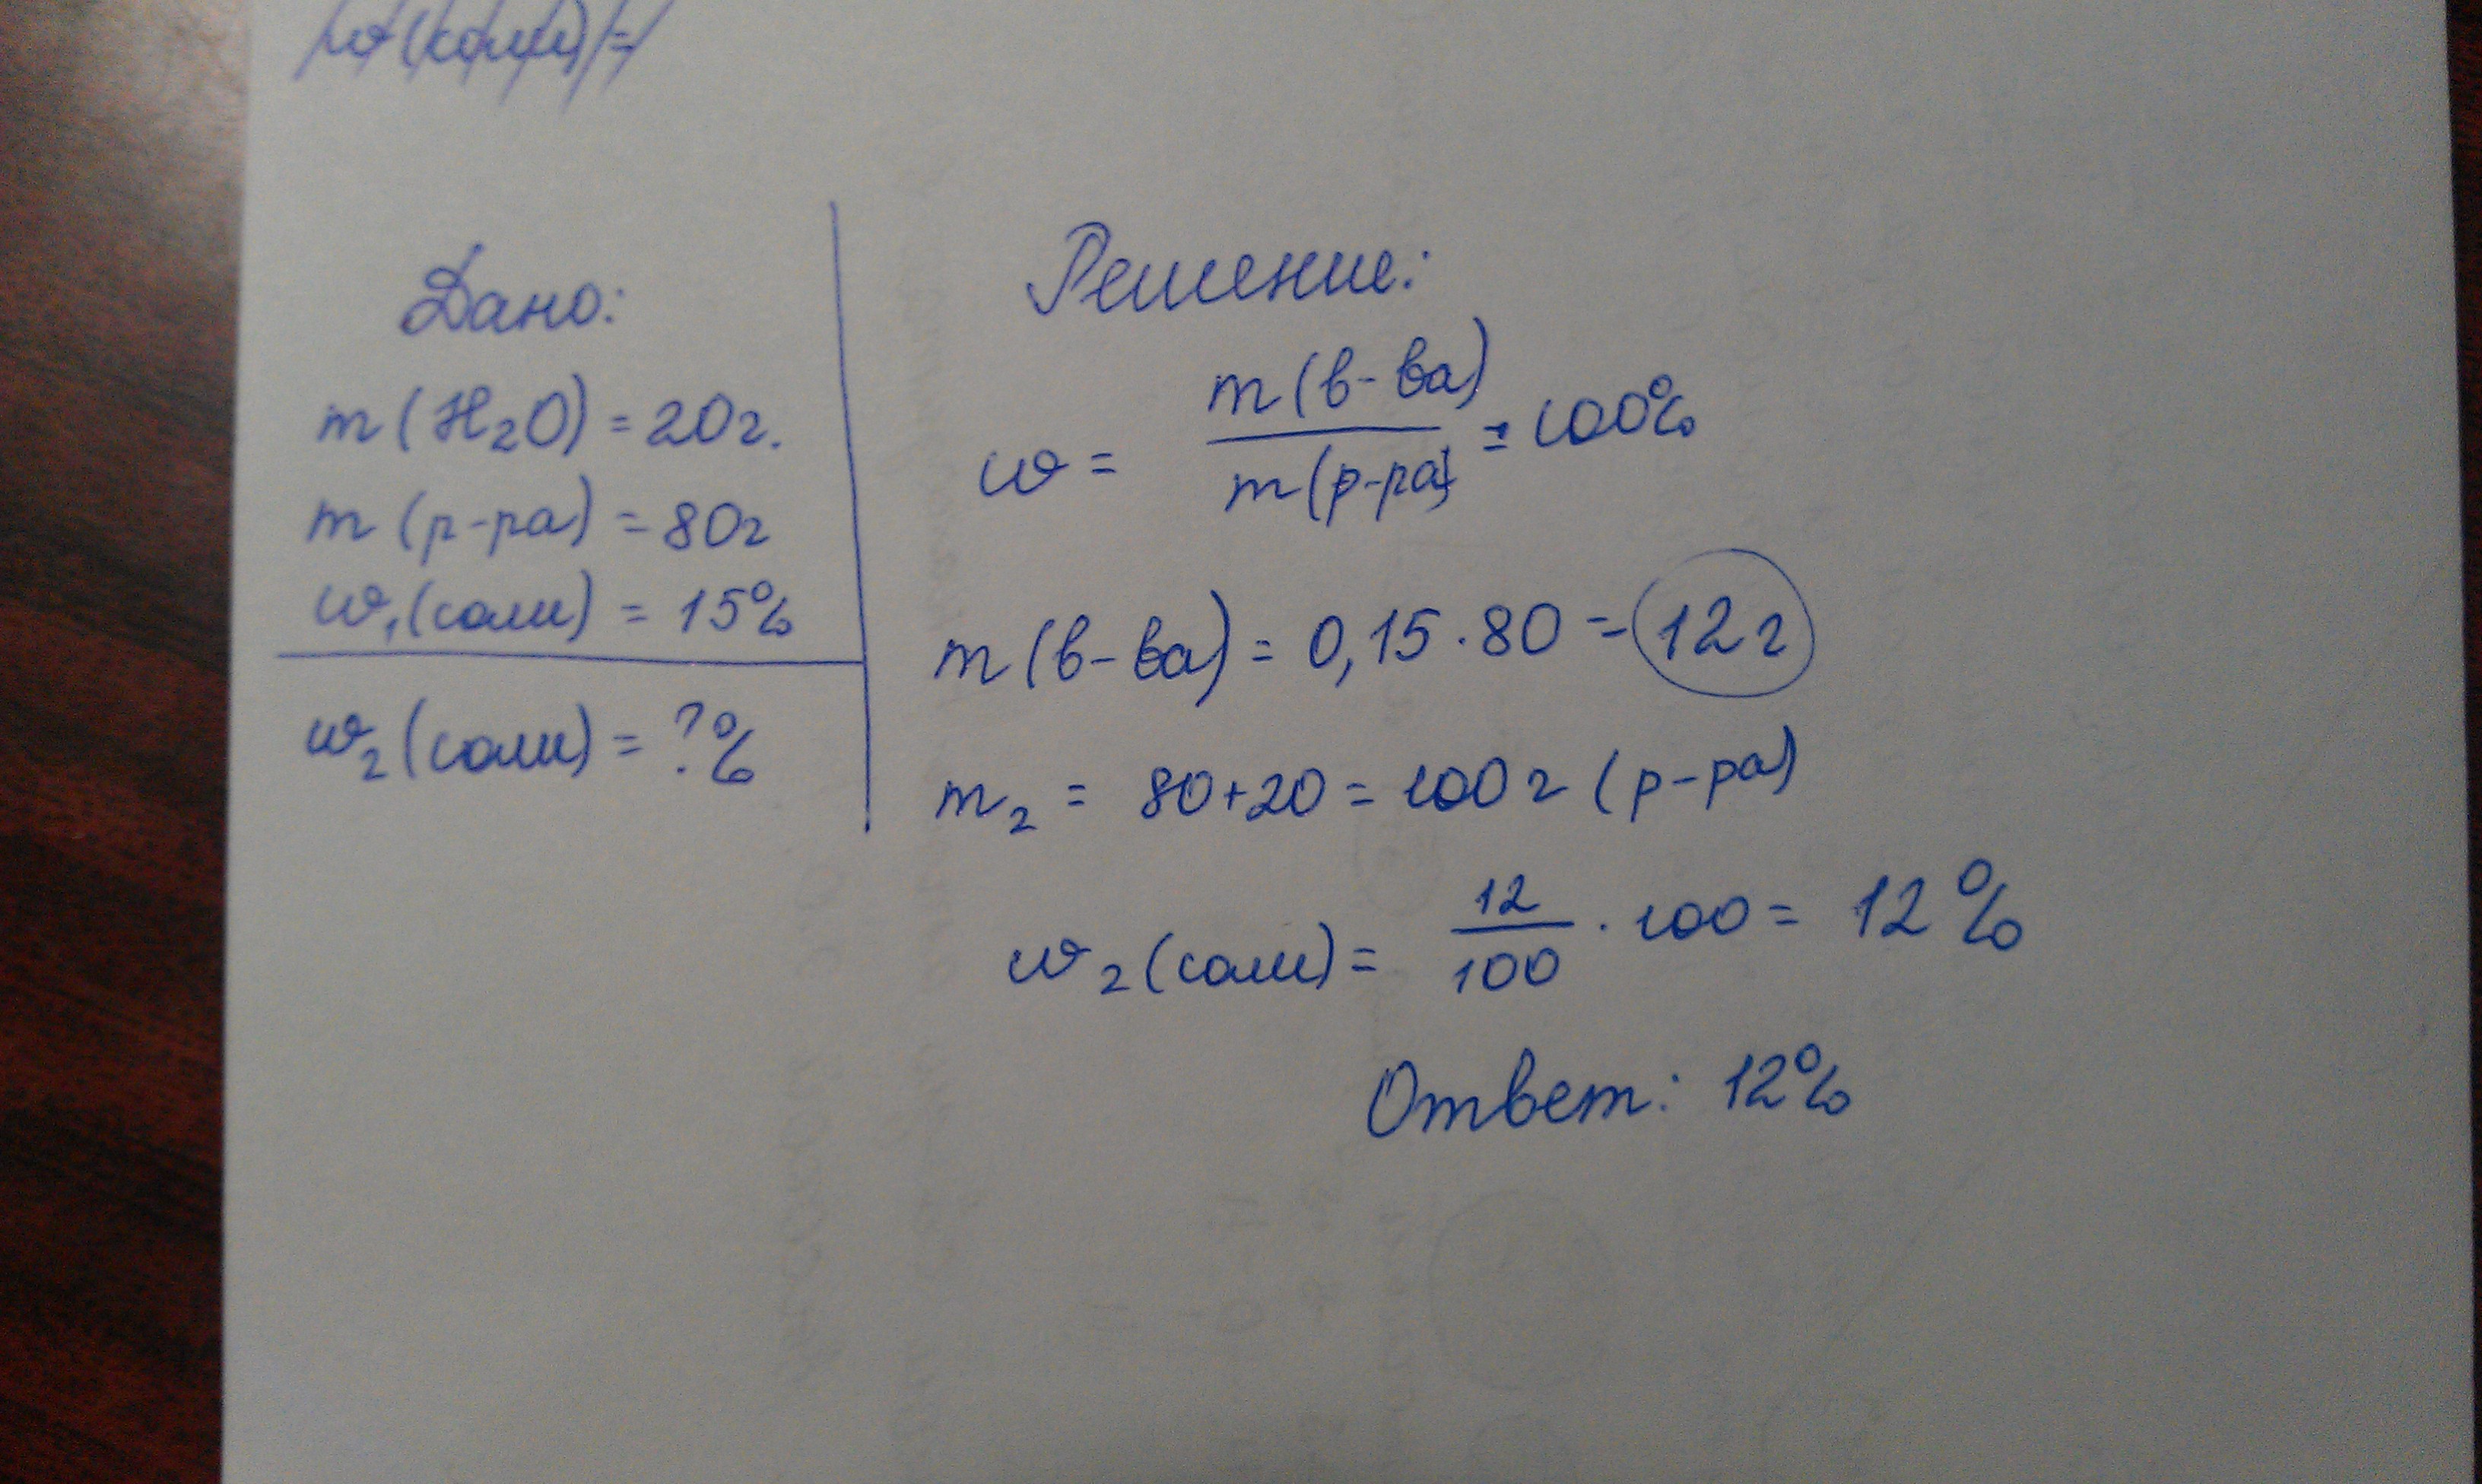 Дано:
m(H₂O) = 20г.
m(р-ра) = 80г
w₁(соли) = 15%
w₂(соли) = ?%
Решение:
w = m(в-ва) / m(р-ра) = 100%
m(в-ва) = 0,15 · 80 = 12г
m₂ = 80+20 = 100г (р-ра)
w₂(соли) = 12/100 · 100 = 12%
Ответ: 12%